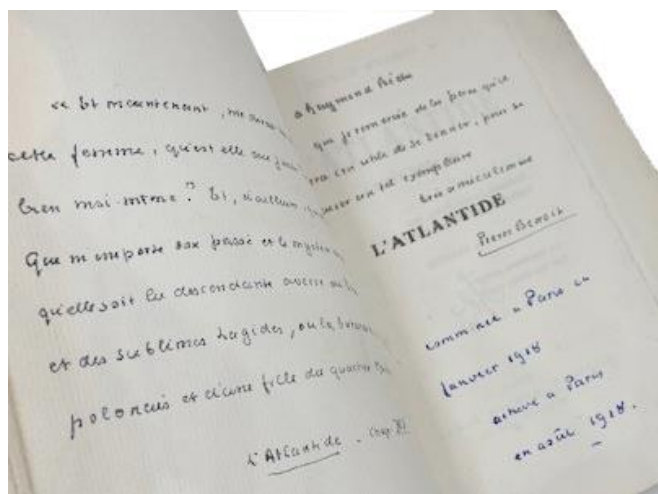 « Et maintenant,
cette femme, qu'est elle au juste
bien moi-même ? Et, d'ailleurs,
Que m'importe son passé et le mystère
qu'elle soit la descendante avérée
et des sublimes Lagides, ou la
polonais et d'une fille du quartier
L'Atlantide - Chap. XI
à Raymond
que je remercie de la peine qu'il
cru utile de se donner, pour se
un tel exemplaire
bien amicalement
L'ATLANTIDE
Pierre Benoit
commencé à Paris en
Janvier 1918
achevé à Paris
en août 1918.